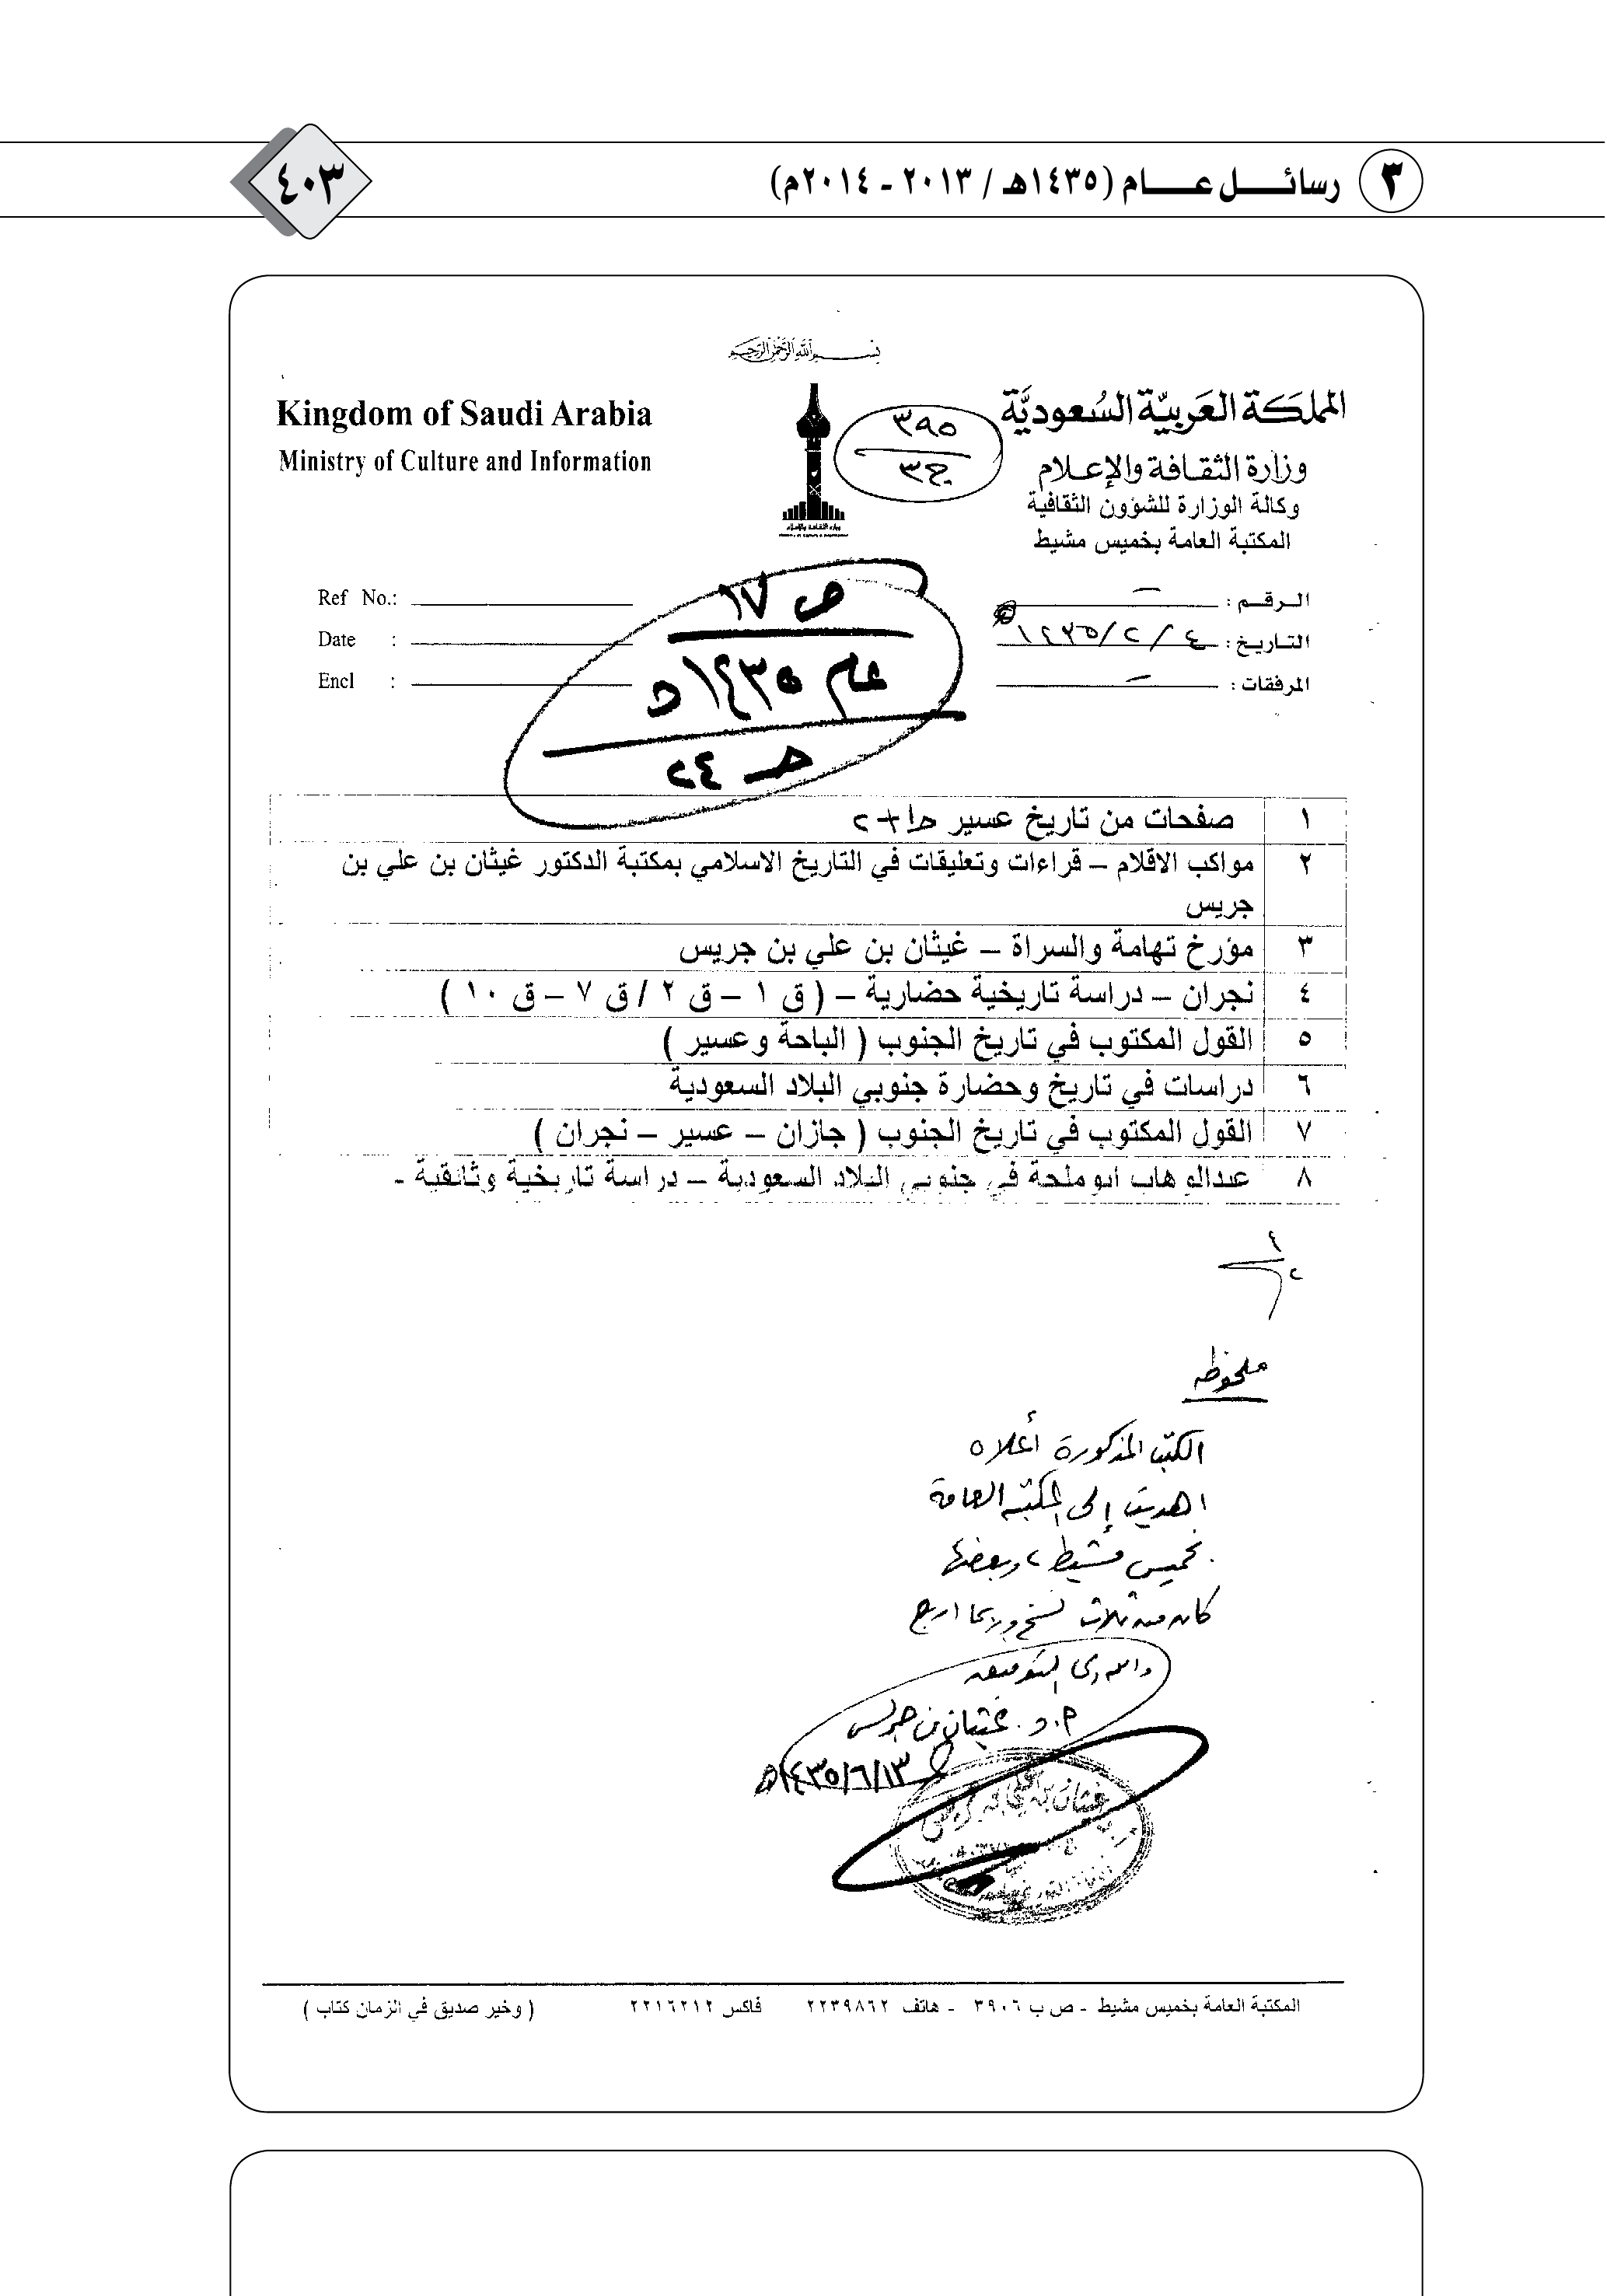 ٣ رسائل عام (١٤٣٥هـ / ٢٠١٣ - ٢٠١٤م)
٤٠٣
بسم الله الرحمن الرحيم
المملكة العربية السعودية
وزارة الثقافة والإعلام
وكالة الوزارة للشؤون الثقافية
المكتبة العامة بخميس مشيط
Kingdom of Saudi Arabia
Ministry of Culture and Information
٣٩٥
ج٣
الرقم : –
التاريخ : ٤ / ٢ / ١٤٣٥هـ
المرفقات : –
Ref No.:
Date :
Encl :
ص ١٧
عام ١٤٣٥هـ
حـ ٢٤
١ صفحات من تاريخ عسير ج١+٢
٢ مواكب الاقلام – قراءات وتعليقات في التاريخ الاسلامي بمكتبة الدكتور غيثان بن علي بن
جريس
٣ مؤرخ تهامة والسراة – غيثان بن علي بن جريس
٤ نجران – دراسة تاريخية حضارية – ( ق ١ – ق ٢ / ق ٧ – ق ١٠ )
٥ القول المكتوب في تاريخ الجنوب ( الباحة وعسير )
٦ دراسات في تاريخ وحضارة جنوبي البلاد السعودية
٧ القول المكتوب في تاريخ الجنوب ( جازان – عسير – نجران )
٨ عبدالوهاب ابوملحة في جنوبي البلاد السعودية – دراسة تاريخية وثائقية -
ملحوظه
الكتب المذكورة أعلاه
اهديت إلى المكتبه العامة
بخميس مشيط ، وبعضها
كان منه ثلاث نسخ وربما اربع
والله ولي التوفيق
أ.د. غيثان بن جريس
١٤٣٥/٦/١٣هـ
المكتبة العامة بخميس مشيط - ص ب ٣٩٠٦ - هاتف ٢٢٣٩٨٦٢ فاكس ٢٢١٦٢١٢ ( وخير صديق في الزمان كتاب )